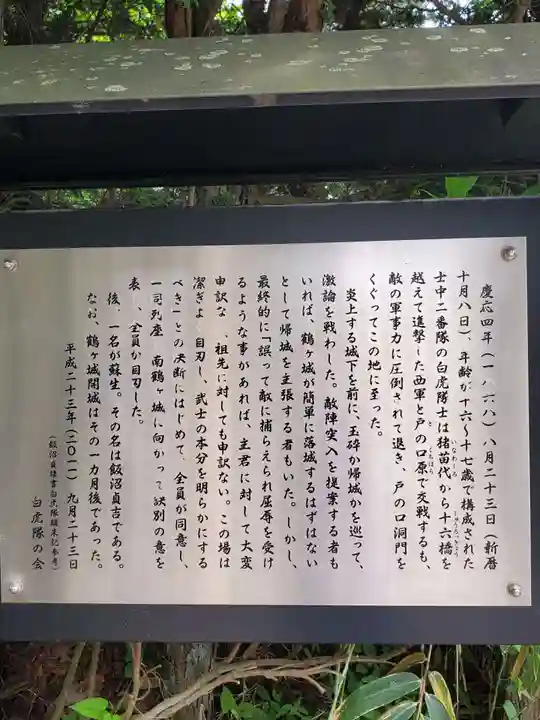 慶応四年（一八六八）八月二十三日（新暦
十月八日）、年齢が十六～十七歳で構成された
士中二番隊の白虎隊士は猪苗代から十六橋を
越えて進撃した西軍と戸の口原で交戦するも、
敵の軍事力に圧倒されて退き、戸の口洞門を
くぐってこの地に至った。
炎上する城下を前に、玉砕か帰城かを巡って、
激論を戦わした。敵陣突入を提案する者も
いれば、鶴ヶ城が簡単に落城するはずはない
として帰城を主張する者もいた。しかし、
最終的に「誤って敵に捕らえられ屈辱を受け
るような事があれば、主君に対して大変
申訳な　、祖先に対しても申訳ない。この場は
潔ぎよ　自刃し、武士の本分を明らかにする
べき」との決断にはじめて、全員が同意し、
一同列座　南鶴ヶ城に向かって訣別の意を
表し、全員が自刃した。
後、一名が蘇生。その名は飯沼貞吉である。
なお、鶴ヶ城開城はその一カ月後であった。
平成二十三年（二〇一一）九月二十三日
（飯沼貞雄書白虎隊顛末記参考）
白虎隊の会